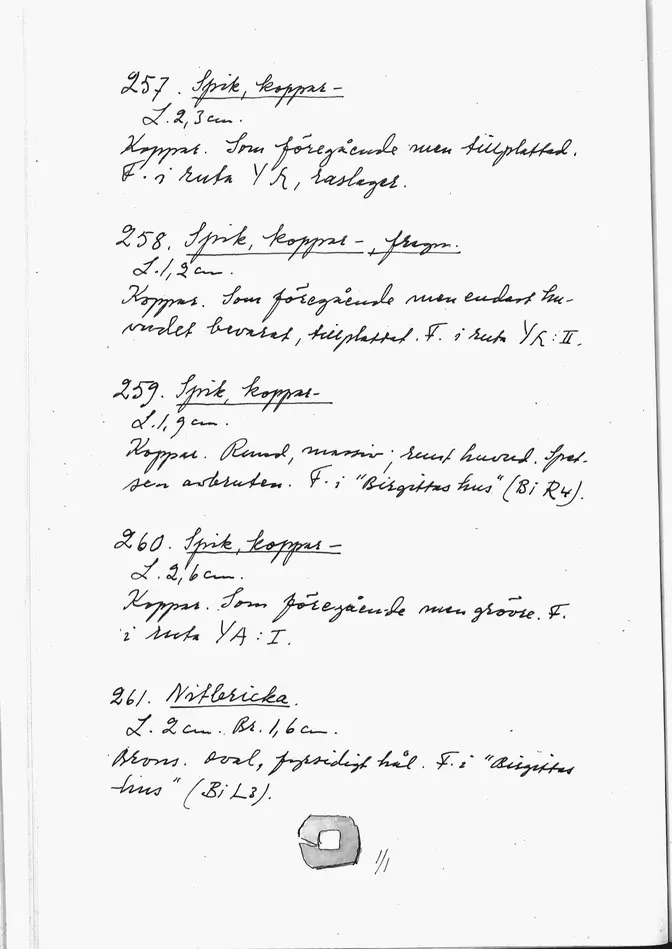 257. Spik, koppar-
L. 2,3 cm.
Koppar. Som föregående men tillplattad.
F. i ruta YK, raslager.
258. Spik, koppar-, fragm.
L. 1,2 cm.
Koppar. Som föregående men endast hu-
vudet bevarat, tillplattat. F. i ruta YK:II.
259. Spik, koppar-
L. 1,9 cm.
Koppar. Rund, massiv; runt huvud. Spet-
sen avbruten. F. i "Birgittas hus" (Bi R4).
260. Spik, koppar-
L. 2,6 cm.
Koppar. Som föregående men grövre. F.
i ruta YA:I.
261. Nitbricka.
L. 2 cm. Br. 1,6 cm.
Brons. Oval, fyrsidigt hål. F. i "Birgittas
hus" (Bi L3).
1/1